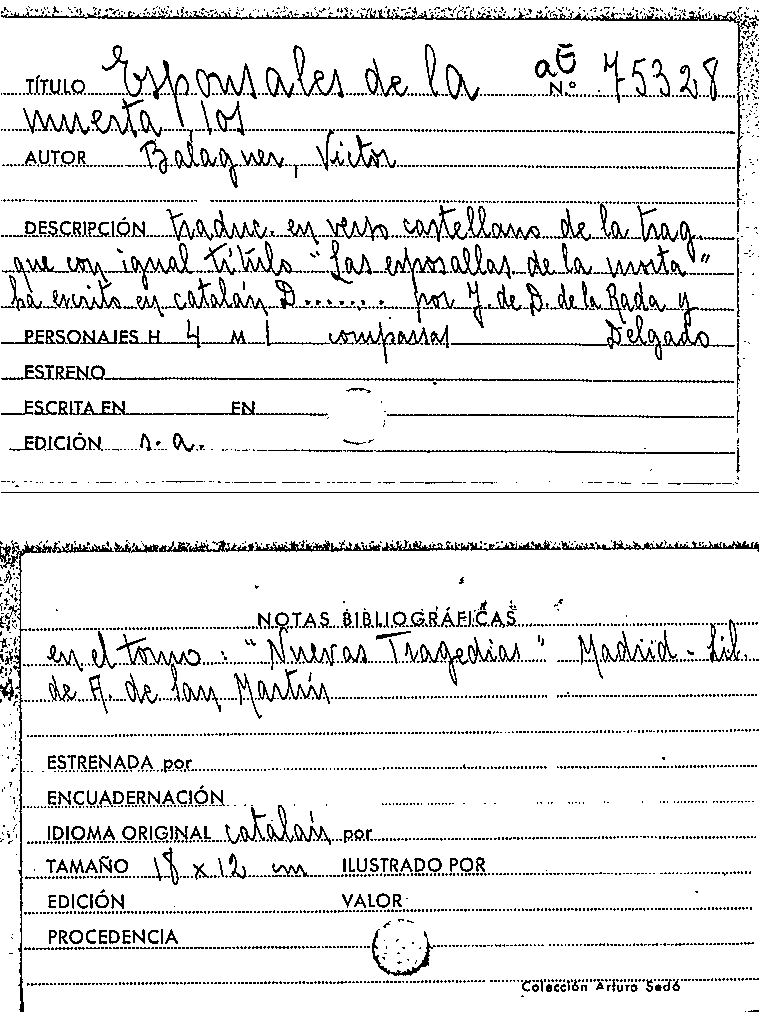 TÍTULO Esponsales de la aE N.º 75328
muerta, los
AUTOR Balaguer, Victor
DESCRIPCIÓN traduc. en verso castellano de la trag.
que con igual título "Las esposallas de la morta"
ha escrito en catalán D....... por J. de D. de la Rada y
PERSONAJES H 4 M 1 comparsas Delgado
ESTRENO
ESCRITA EN EN
EDICIÓN s. a.
NOTAS BIBLIOGRÁFICAS
en el tomo: "Nuevas Tragedias" Madrid - Lib.
de A. de San Martín
ESTRENADA por
ENCUADERNACIÓN
IDIOMA ORIGINAL catalán por
TAMAÑO 18 x 12 cm ILUSTRADO POR
EDICIÓN VALOR
PROCEDENCIA
Colección Arturo Sedó